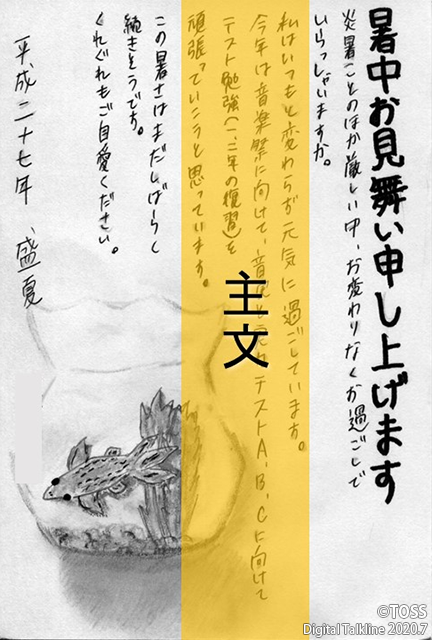 暑中お見舞い申し上げます
炎暑ことのほか厳しい中、お変わりなくお過ごしで
いらっしゃいますか。
私はいつもと変わらず元気に過ごしています。
今年は音楽祭に向けて、と実力テストA、B、Cに向けて
テスト勉強(一、二年の復習)を
頑張っていこうと思っています。
主文
この暑さはまだしばらく
続きそうです。
くれぐれもご自愛ください。
平成二十七年、盛夏
©TOSS
DigitalTalkline 2020.7